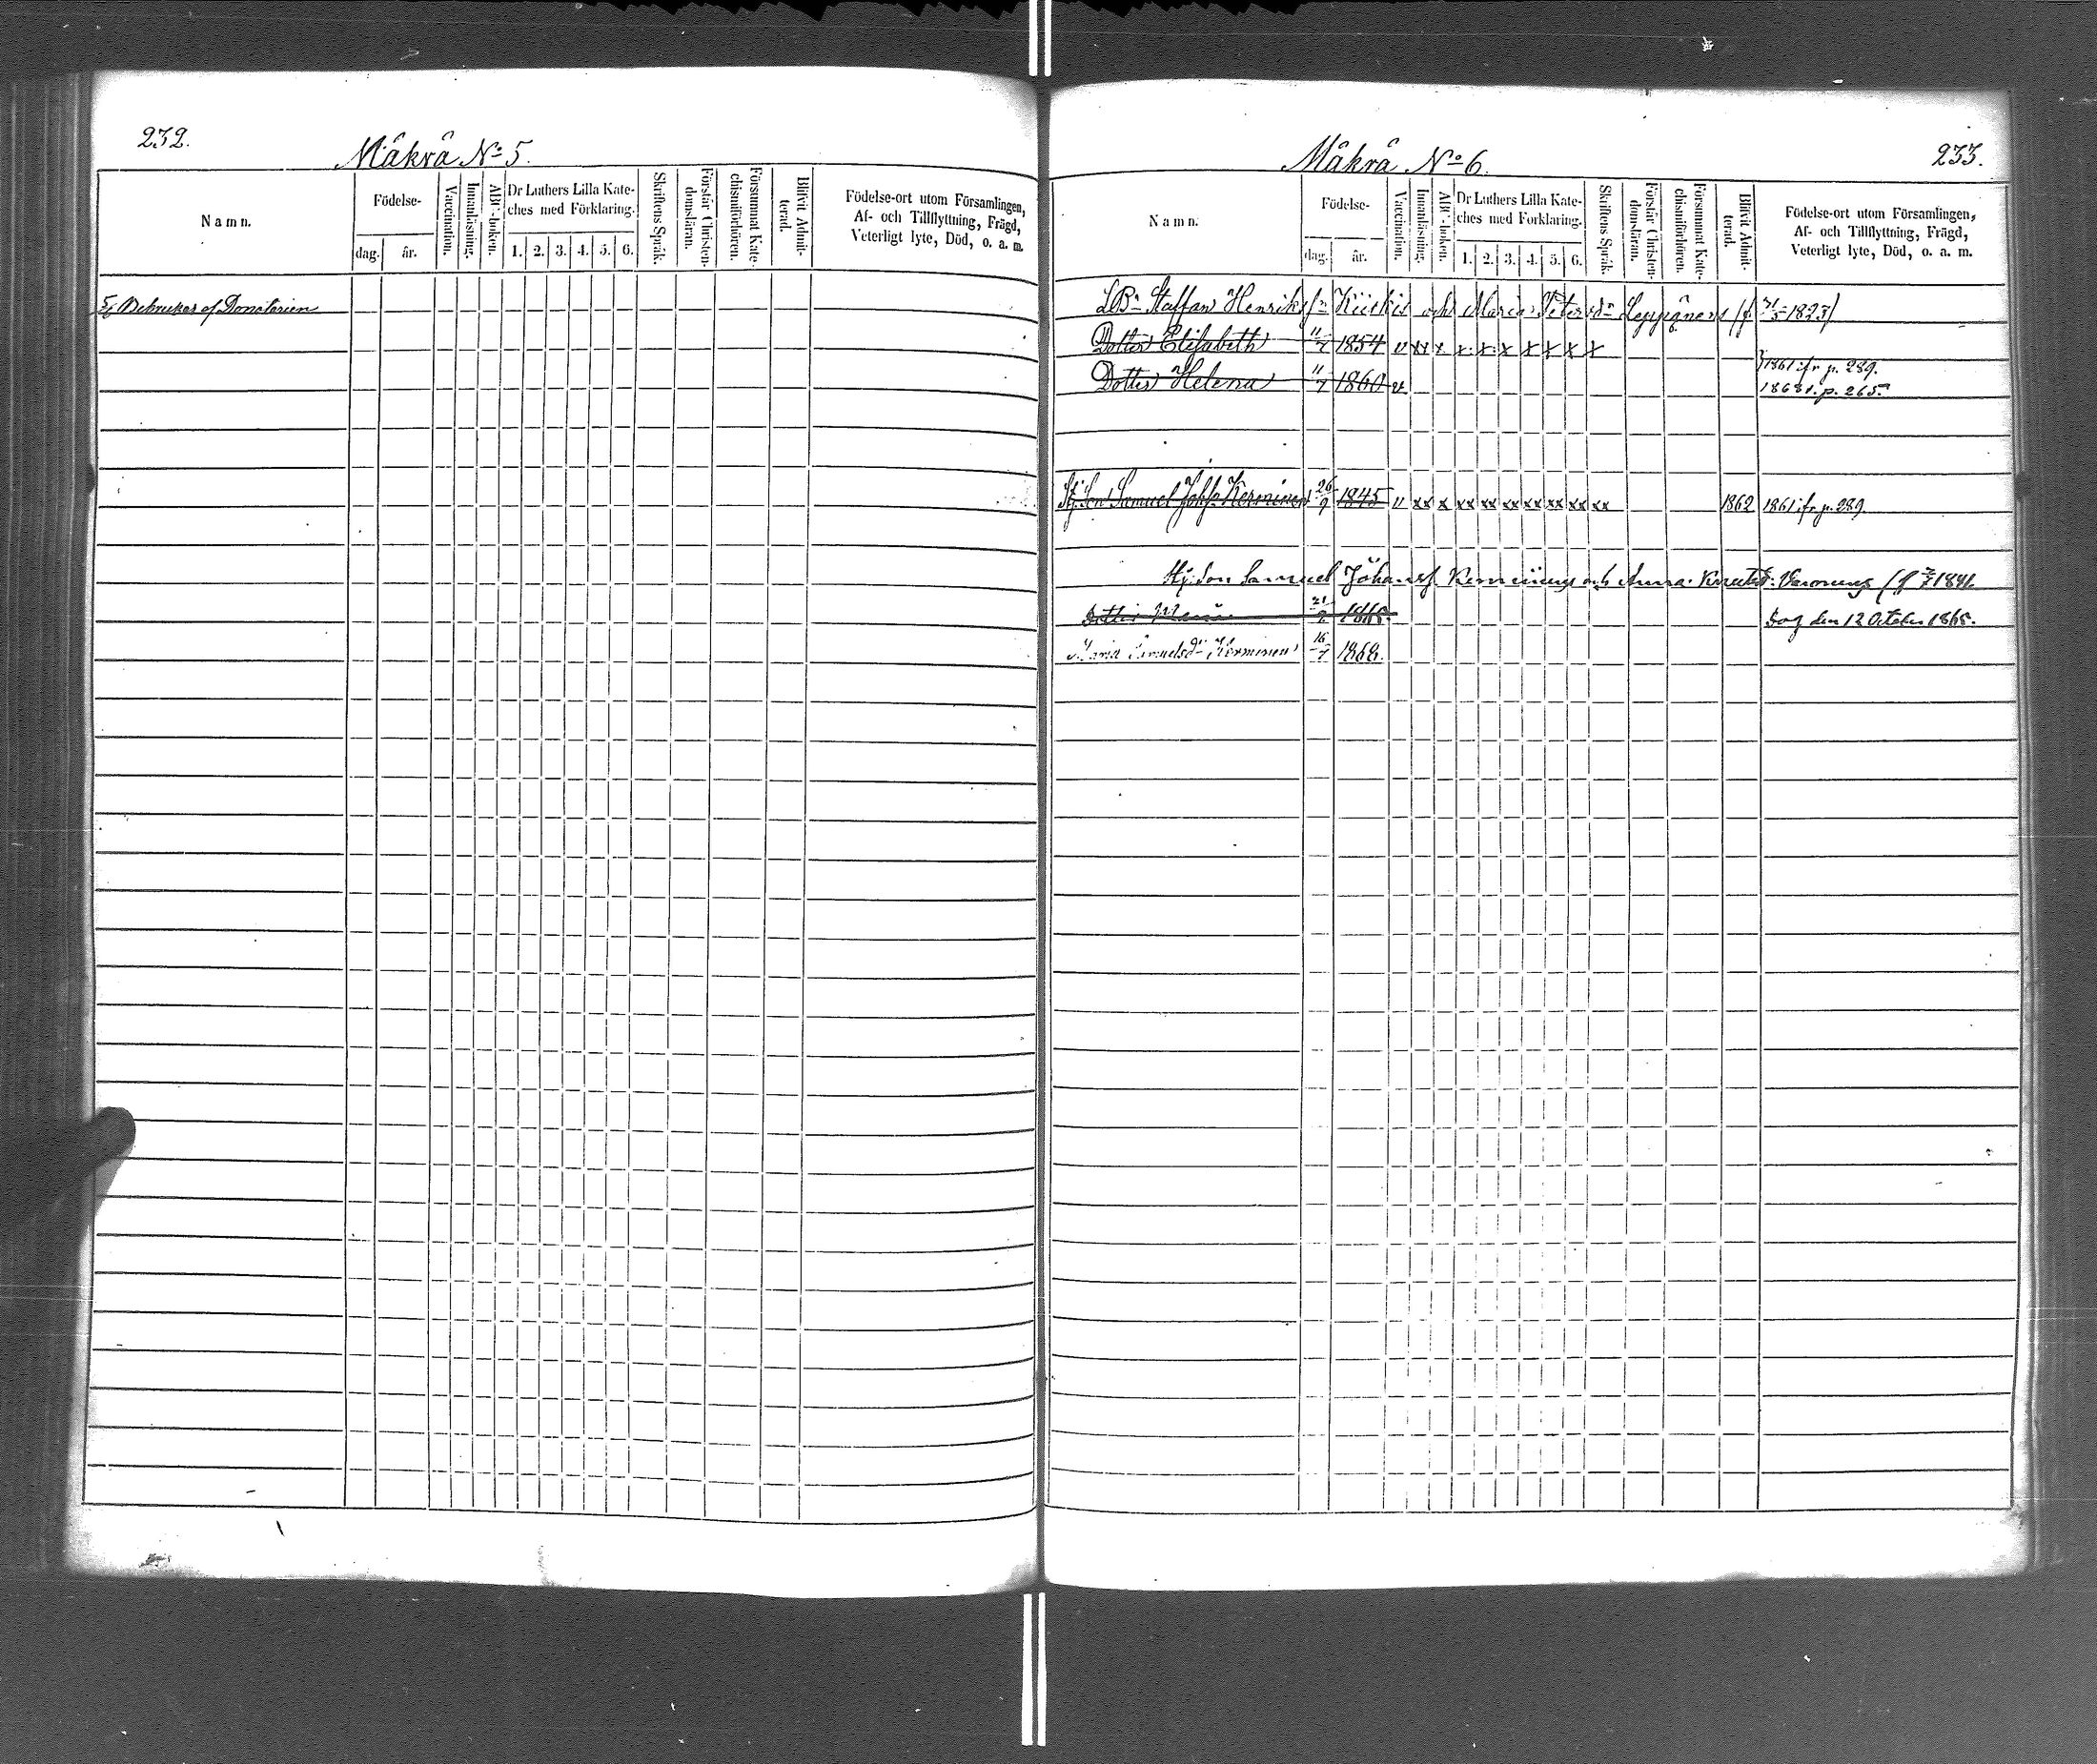 232.
Måkrå No 5.
Namn.
Födelse-
dag.
år.
Vaccination.
Innanläsning.
ABC-boken.
Dr Luthers Lilla Kate-
ches med Förklaring.
1. 2. 3. 4. 5. 6.
Skriftens Språk.
Förstår Christen-
domsläran.
Försummat Kate-
chismiförhören.
Blifvit Admit-
terad.
Födelse-ort utom Församlingen,
Af- och Tillflyttning, Frägd,
Veterligt lyte, Död, o. a. m.
Bebrukas af Donatorien
Måkrå No 6.
233.
Namn.
Födelse-
dag.
år.
Vaccination.
Innanläsning.
ABC-boken.
Dr Luthers Lilla Kate-
ches med Förklaring.
1. 2. 3. 4. 5. 6.
Skriftens Språk.
Förstår Christen-
domsläran.
Försummat Kate-
chismiförhören.
Blifvit Admit-
terad.
Födelse-ort utom Församlingen,
Af- och Tillflyttning, Frägd,
Veterligt lyte, Död, o. a. m.
Staffan Henriks och Maria Peters dr (f. 1823)
Dotter Elisabeth 11/7 1854 v xx x x x x x x x x
Dotter Helena 11/7 1860 v 1861 ifr p. 289.
1868 t. p. 265.
Son Samuel Johs. Kerminen 26/9 1845 v xx x xx xx xx xx xx xx xx 1862 1861 ifr p. 289.
Son Samuel Johans. och Anna 1841
Dotter Maria 21 1865. Dog den 12 October 1865.
Maria Samuelsdr Kerminen 16/7 1868.